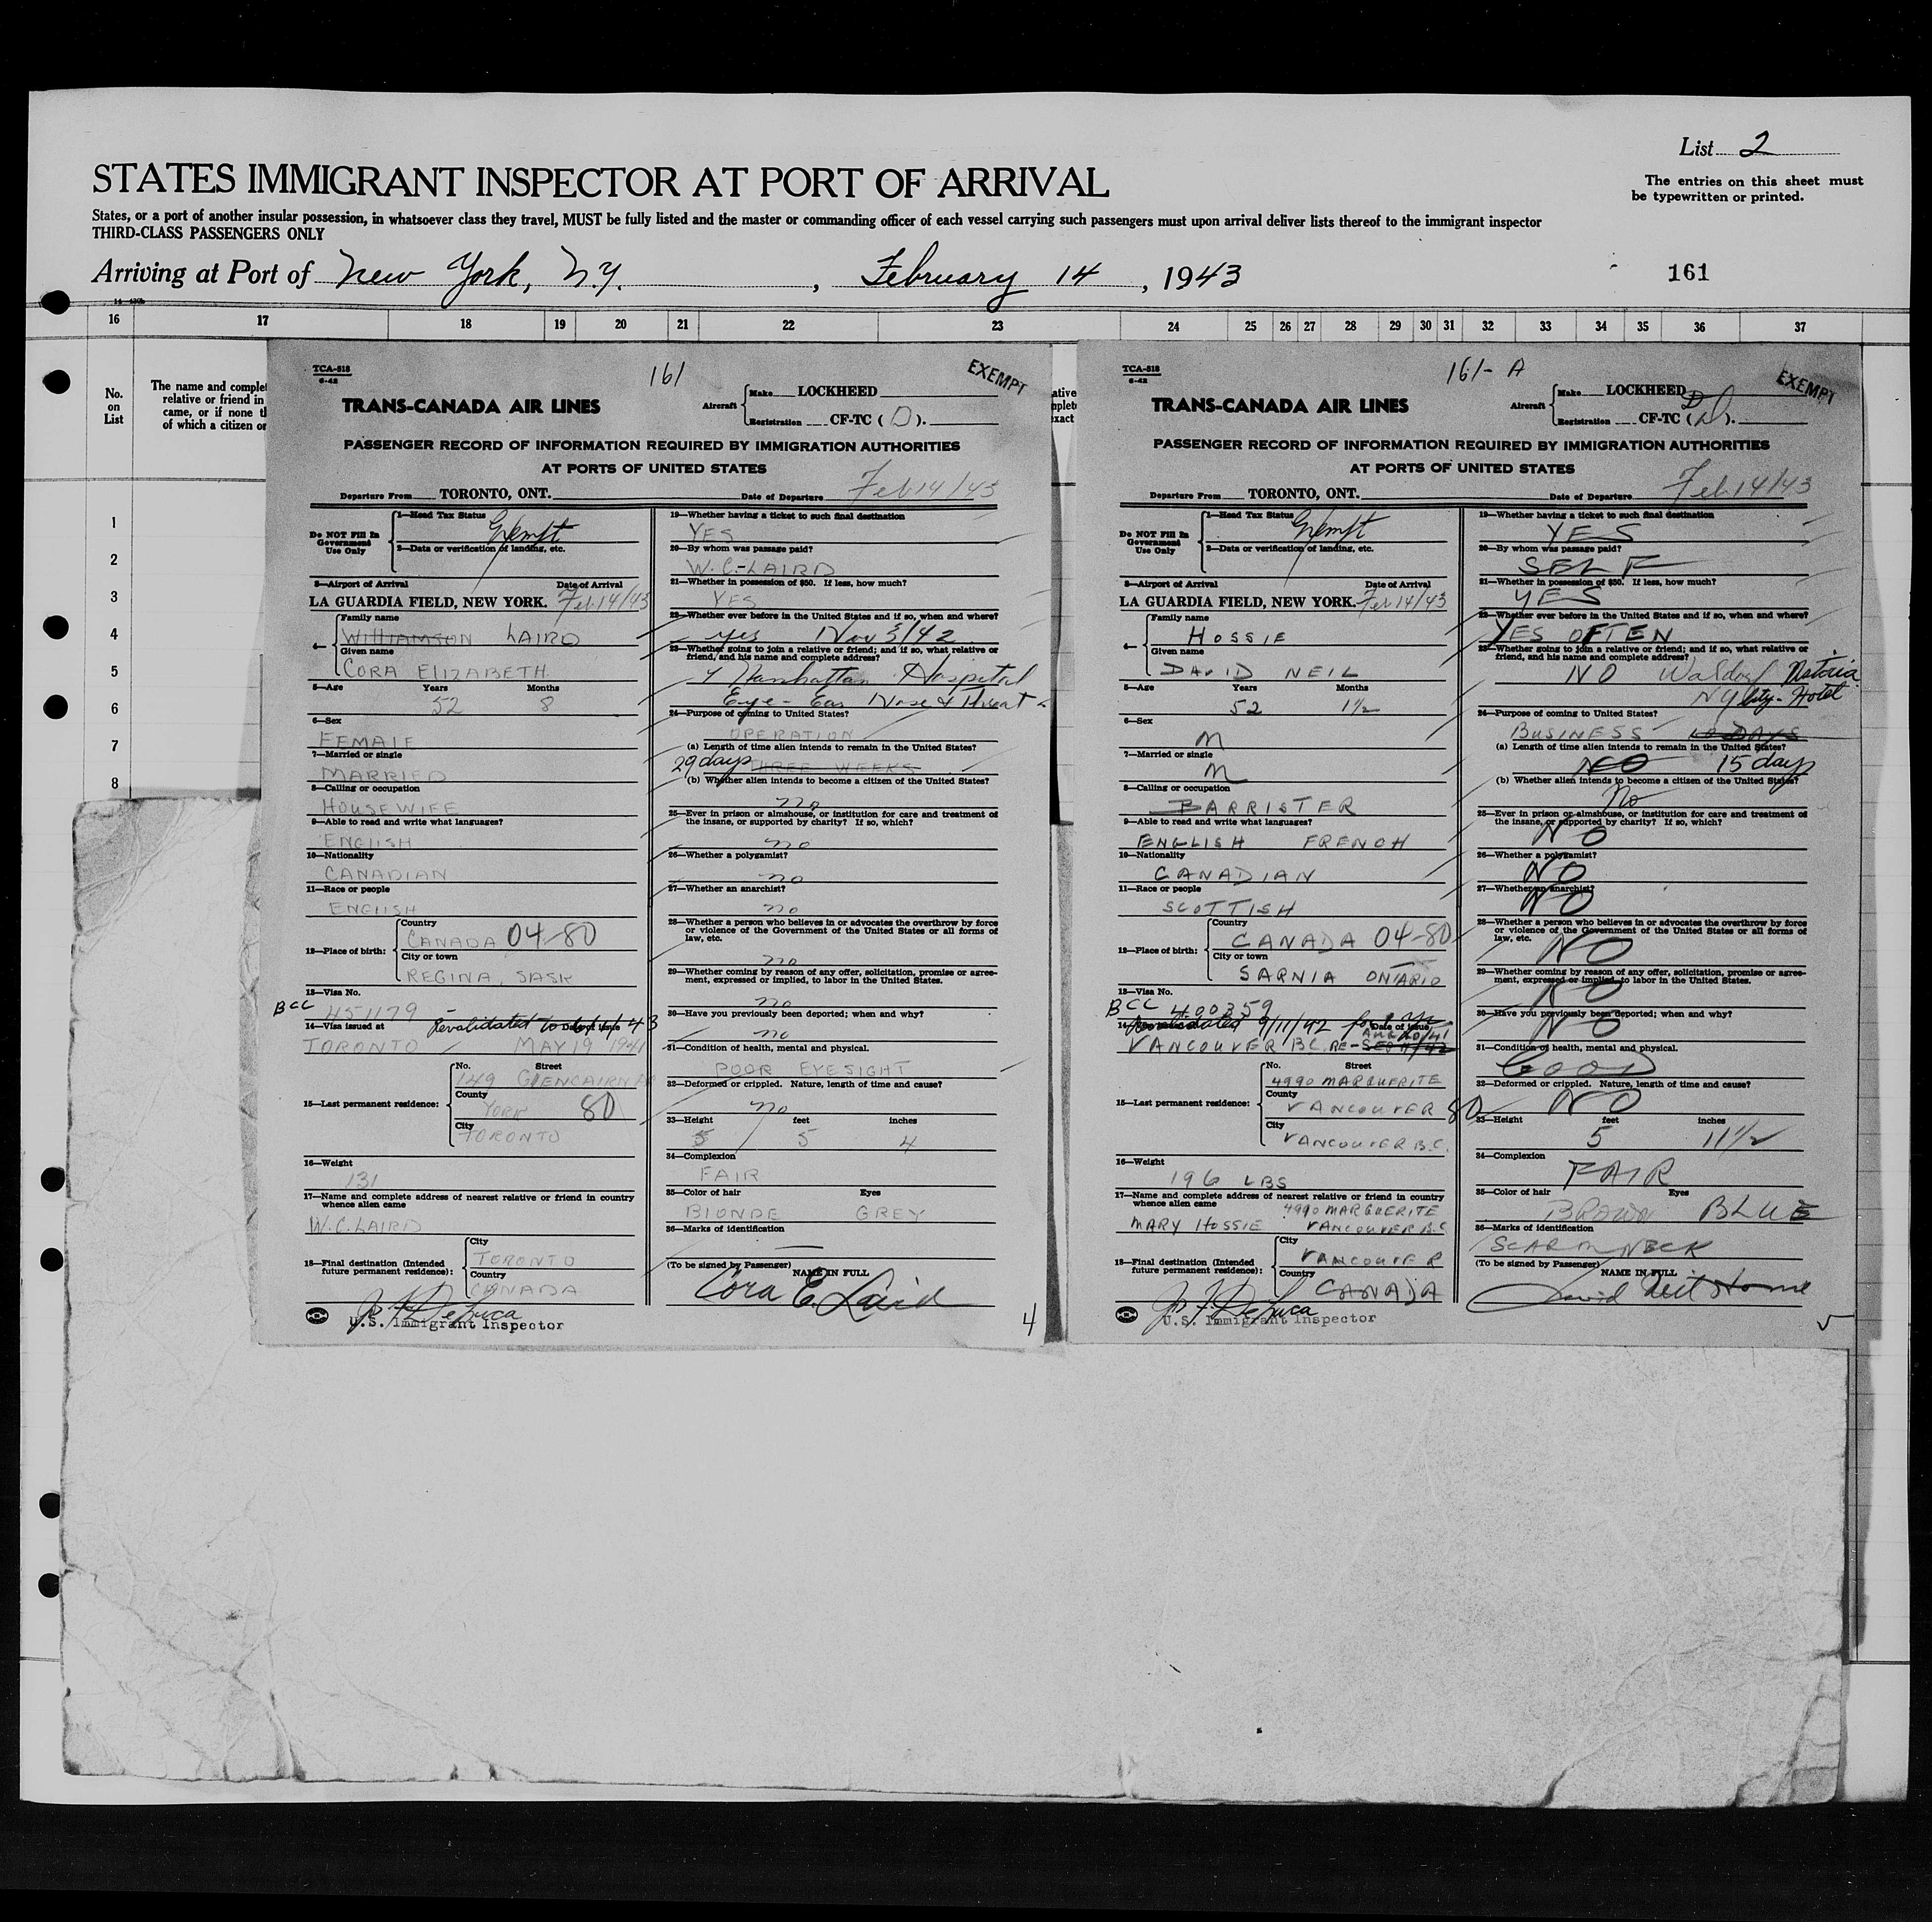 List 2
STATES IMMIGRANT INSPECTOR AT PORT OF ARRIVAL
The entries on this sheet must
be typewritten or printed.
States, or a port of another insular possession, in whatsoever class they travel, MUST be fully listed and the master or commanding officer of each vessel carrying such passengers must upon arrival deliver lists thereof to the immigrant inspector
THIRD-CLASS PASSENGERS ONLY
Arriving at Port of New York, N.Y., February 14, 1943
161
16 17 18 19 20 21 22 23 24 25 26 27 28 29 30 31 32 33 34 35 36 37
No.
on
List
The name and complet
relative or friend in
came, or if none th
of which a citizen or
1
2
3
4
5
6
7
8
TCA-518
6-42
161
EXEMPT
TRANS-CANADA AIR LINES
Aircraft
Make LOCKHEED
Registration CF-TC (D).
PASSENGER RECORD OF INFORMATION REQUIRED BY IMMIGRATION AUTHORITIES
AT PORTS OF UNITED STATES
Departure From TORONTO, ONT. Date of Departure Feb 14/43
Do NOT Fill In
Government
Use Only
1—Head Tax Status Exempt
2—Data or verification of landing, etc.
3—Airport of Arrival Date of Arrival
LA GUARDIA FIELD, NEW YORK. Feb 14/43
4—
Family name
WILLIAMSON LAIRD
Given name
CORA ELIZABETH
5—Age Years Months
52 8
6—Sex
FEMALE
7—Married or single
MARRIED
8—Calling or occupation
HOUSEWIFE
9—Able to read and write what languages?
ENGLISH
10—Nationality
CANADIAN
11—Race or people
ENGLISH
12—Place of birth:
Country
CANADA 04-80
City or town
REGINA, SASK
13—Visa No.
BCC 451179
14—Visa issued at Revalidated to Date of issue
TORONTO MAY 19 1941
15—Last permanent residence:
No. Street
149 GLENCAIRN AV
County
YORK 80
City
TORONTO
16—Weight
131
17—Name and complete address of nearest relative or friend in country
whence alien came
W.C. LAIRD
18—Final destination (Intended
future permanent residence):
City
TORONTO
Country
CANADA
J. F. DeLuca
U.S. Immigrant Inspector
19—Whether having a ticket to such final destination
YES
20—By whom was passage paid?
W.C.-LAIRD
21—Whether in possession of $50. If less, how much?
YES
22—Whether ever before in the United States and if so, when and where?
yes Nov 3/42
23—Whether going to join a relative or friend; and if so, what relative or
friend, and his name and complete address?
Manhattan Hospital
Eye - Ear Nose & Throat
24—Purpose of coming to United States?
OPERATION
(a) Length of time alien intends to remain in the United States?
29 days THREE WEEKS
(b) Whether alien intends to become a citizen of the United States?
no
25—Ever in prison or almshouse, or institution for care and treatment of
the insane, or supported by charity? If so, which?
no
26—Whether a polygamist?
no
27—Whether an anarchist?
no
28—Whether a person who believes in or advocates the overthrow by force
or violence of the Government of the United States or all forms of
law, etc.
no
29—Whether coming by reason of any offer, solicitation, promise or agree-
ment, expressed or implied, to labor in the United States.
no
30—Have you previously been deported; when and why?
no
31—Condition of health, mental and physical.
POOR EYESIGHT
32—Deformed or crippled. Nature, length of time and cause?
no
33—Height feet inches
5 5 4
34—Complexion
FAIR
35—Color of hair Eyes
BLONDE GREY
36—Marks of identification
—
(To be signed by Passenger)
NAME IN FULL
Cora E. Laird
4
TCA-518
6-42
161-A
EXEMPT
TRANS-CANADA AIR LINES
Aircraft
Make LOCKHEED
Registration CF-TC (D).
PASSENGER RECORD OF INFORMATION REQUIRED BY IMMIGRATION AUTHORITIES
AT PORTS OF UNITED STATES
Departure From TORONTO, ONT. Date of Departure Feb. 14/43
Do NOT Fill In
Government
Use Only
1—Head Tax Status Exempt
2—Data or verification of landing, etc.
3—Airport of Arrival Date of Arrival
LA GUARDIA FIELD, NEW YORK. Feb 14/43
4—
Family name
HOSSIE
Given name
DAVID NEIL
5—Age Years Months
52 1½
6—Sex
M
7—Married or single
M
8—Calling or occupation
BARRISTER
9—Able to read and write what languages?
ENGLISH FRENCH
10—Nationality
CANADIAN
11—Race or people
SCOTTISH
12—Place of birth:
Country
CANADA 04-80
City or town
SARNIA ONTARIO
13—Visa No.
BCC 400359
Date of issue
VANCOUVER B.C.
15—Last permanent residence:
No. Street
4990 MARGUERITE
County
VANCOUVER 80
City
VANCOUVER B.C.
16—Weight
196 LBS
17—Name and complete address of nearest relative or friend in country
whence alien came 4990 MARGUERITE
MARY HOSSIE VANCOUVER B.C
18—Final destination (Intended
future permanent residence):
City
VANCOUVER
Country
CANADA
J. F. DeLuca
U.S. Immigrant Inspector
19—Whether having a ticket to such final destination
YES
20—By whom was passage paid?
SELF
21—Whether in possession of $50. If less, how much?
YES
22—Whether ever before in the United States and if so, when and where?
YES OFTEN
23—Whether going to join a relative or friend; and if so, what relative or
friend, and his name and complete address?
NO Waldorf Astoria
NY City - Hotel
24—Purpose of coming to United States?
BUSINESS
(a) Length of time alien intends to remain in the United States?
NO 15 days
(b) Whether alien intends to become a citizen of the United States?
No
25—Ever in prison or almshouse, or institution for care and treatment of
the insane, or supported by charity? If so, which?
NO
26—Whether a polygamist?
NO
27—Whether an anarchist?
NO
28—Whether a person who believes in or advocates the overthrow by force
or violence of the Government of the United States or all forms of
law, etc.
NO
29—Whether coming by reason of any offer, solicitation, promise or agree-
ment, expressed or implied, to labor in the United States.
NO
30—Have you previously been deported; when and why?
NO
31—Condition of health, mental and physical.
GOOD
32—Deformed or crippled. Nature, length of time and cause?
NO
33—Height feet inches
5 11½
34—Complexion
FAIR
35—Color of hair Eyes
BROWN BLUE
36—Marks of identification
SCAR ON NECK
(To be signed by Passenger)
NAME IN FULL
David Neil Hossie